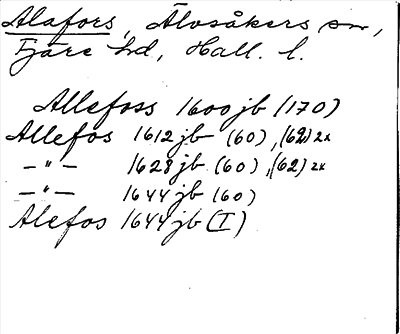 Alafors, Älvsåkers sn,
Fjäre hd, Hall. l.
Allefoss 1600 jb (170)
Allefos 1612 jb (60), (62) 2x
—"— 1628 jb (60), (62) 2x
—"— 1644 jb (60)
Alefos 1644 jb (I)